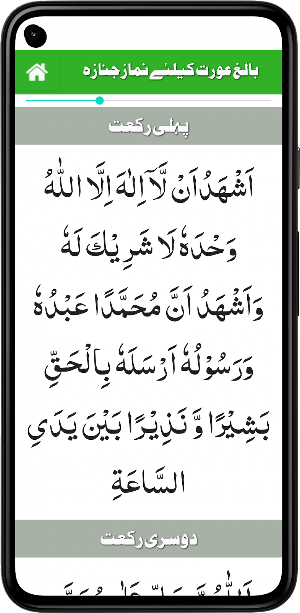 بالغ عورت کیلئے نماز جنازہ
پہلی رکعت
اَشْهَدُ اَنْ لَّآ اِلٰهَ اِلَّا اللّٰهُ
وَحْدَهٗ لَا شَرِيْكَ لَهٗ
وَاَشْهَدُ اَنَّ مُحَمَّدًا عَبْدُهٗ
وَرَسُوْلُهٗ اَرْسَلَهٗ بِالْحَقِّ
بَشِيْرًا وَّ نَذِيْرًا بَيْنَ يَدَيِ
السَّاعَةِ
دوسری رکعت